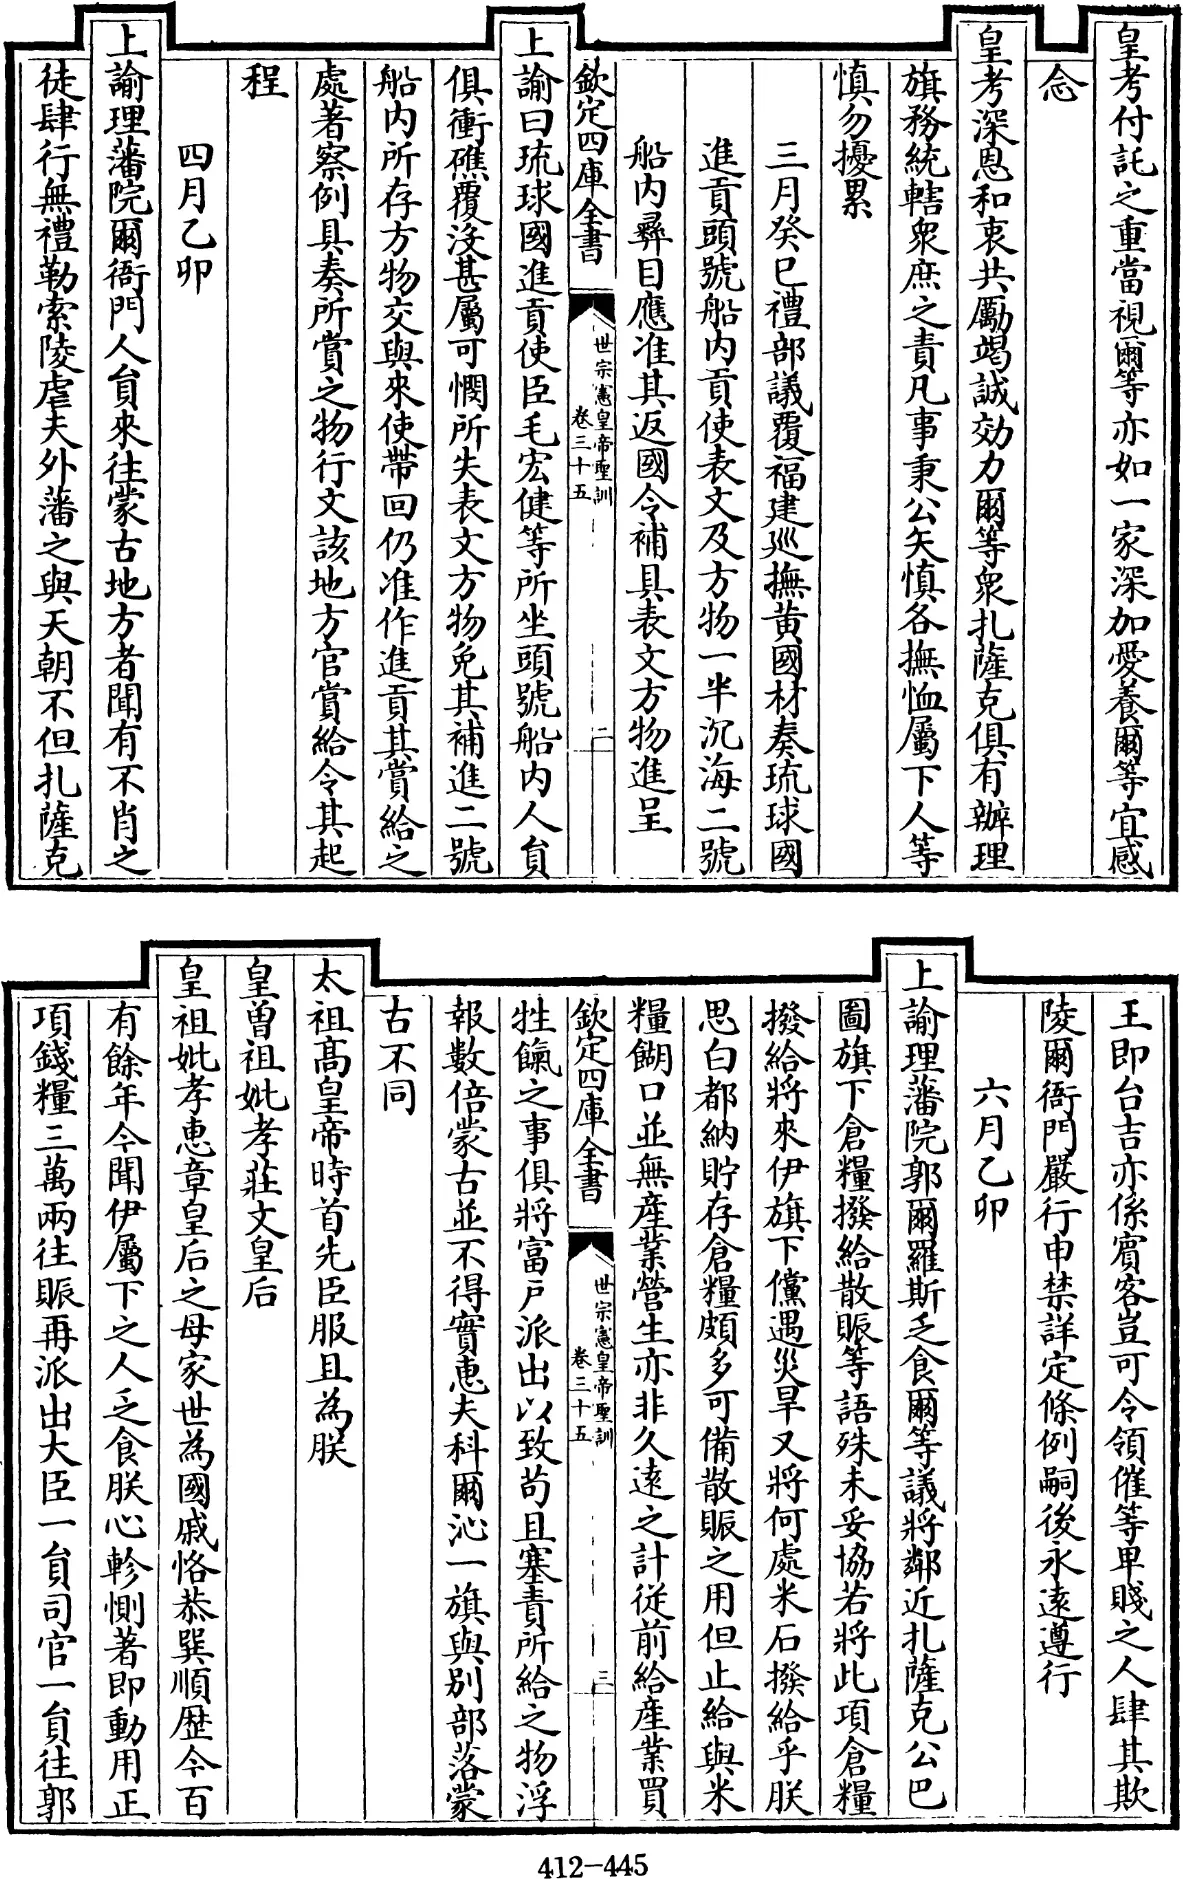 皇考付託之重當視爾等亦如一家深加愛養爾等宜感
念
皇考深恩和衷共勵竭誠効力爾等衆扎薩克俱有辦理
旗務統轄衆庶之責凡事秉公矢慎各撫恤屬下人等
慎勿擾累
三月癸巳禮部議覆福建巡撫黄國材奏琉球國
進貢頭號船内貢使表文及方物一半沉海二號
船内彞目應准其返國令補具表文方物進呈
欽定四庫全書
世宗憲皇帝聖訓
卷三十五
二
上諭曰琉球國進貢使臣毛宏健等所坐頭號船内人負
俱衝礁覆没甚屬可憫所失表文方物免其補進二號
船内所存方物交與來使帶回仍准作進貢其賞給之
處著察例具奏所賞之物行文該地方官賞給令其起
程
四月乙卯
上諭理藩院爾衙門人負來往蒙古地方者聞有不肖之
徒肆行無禮勒索陵虐夫外藩之與天朝不但扎薩克
王即台吉亦係賓客豈可令領催等卑賤之人肆其欺
陵爾衙門嚴行申禁詳定條例嗣後永遠遵行
六月乙卯
上諭理藩院郭爾羅斯乏食爾等議將鄰近扎薩克公巴
圖旗下倉糧撥給散賑等語殊未妥協若將此項倉糧
撥給將來伊旗下儻遇災旱又將何處米石撥給乎朕
思白都納貯存倉糧頗多可備散賑之用但止給與米
糧餬口並無産業營生亦非久遠之計從前給産業買
欽定四庫全書
世宗憲皇帝聖訓
卷三十五
三
牲餼之事俱將富戸派出以致苟且塞責所給之物浮
報數倍蒙古並不得實惠夫科爾沁一旗與别部落蒙
古不同
太祖髙皇帝時首先臣服且為朕
皇曾祖妣孝莊文皇后
皇祖妣孝惠章皇后之母家世為國戚恪恭巽順歴今百
有餘年今聞伊屬下之人乏食朕心軫惻著即動用正
項錢糧三萬兩往賑再派出大臣一負司官一負往郭
412-445